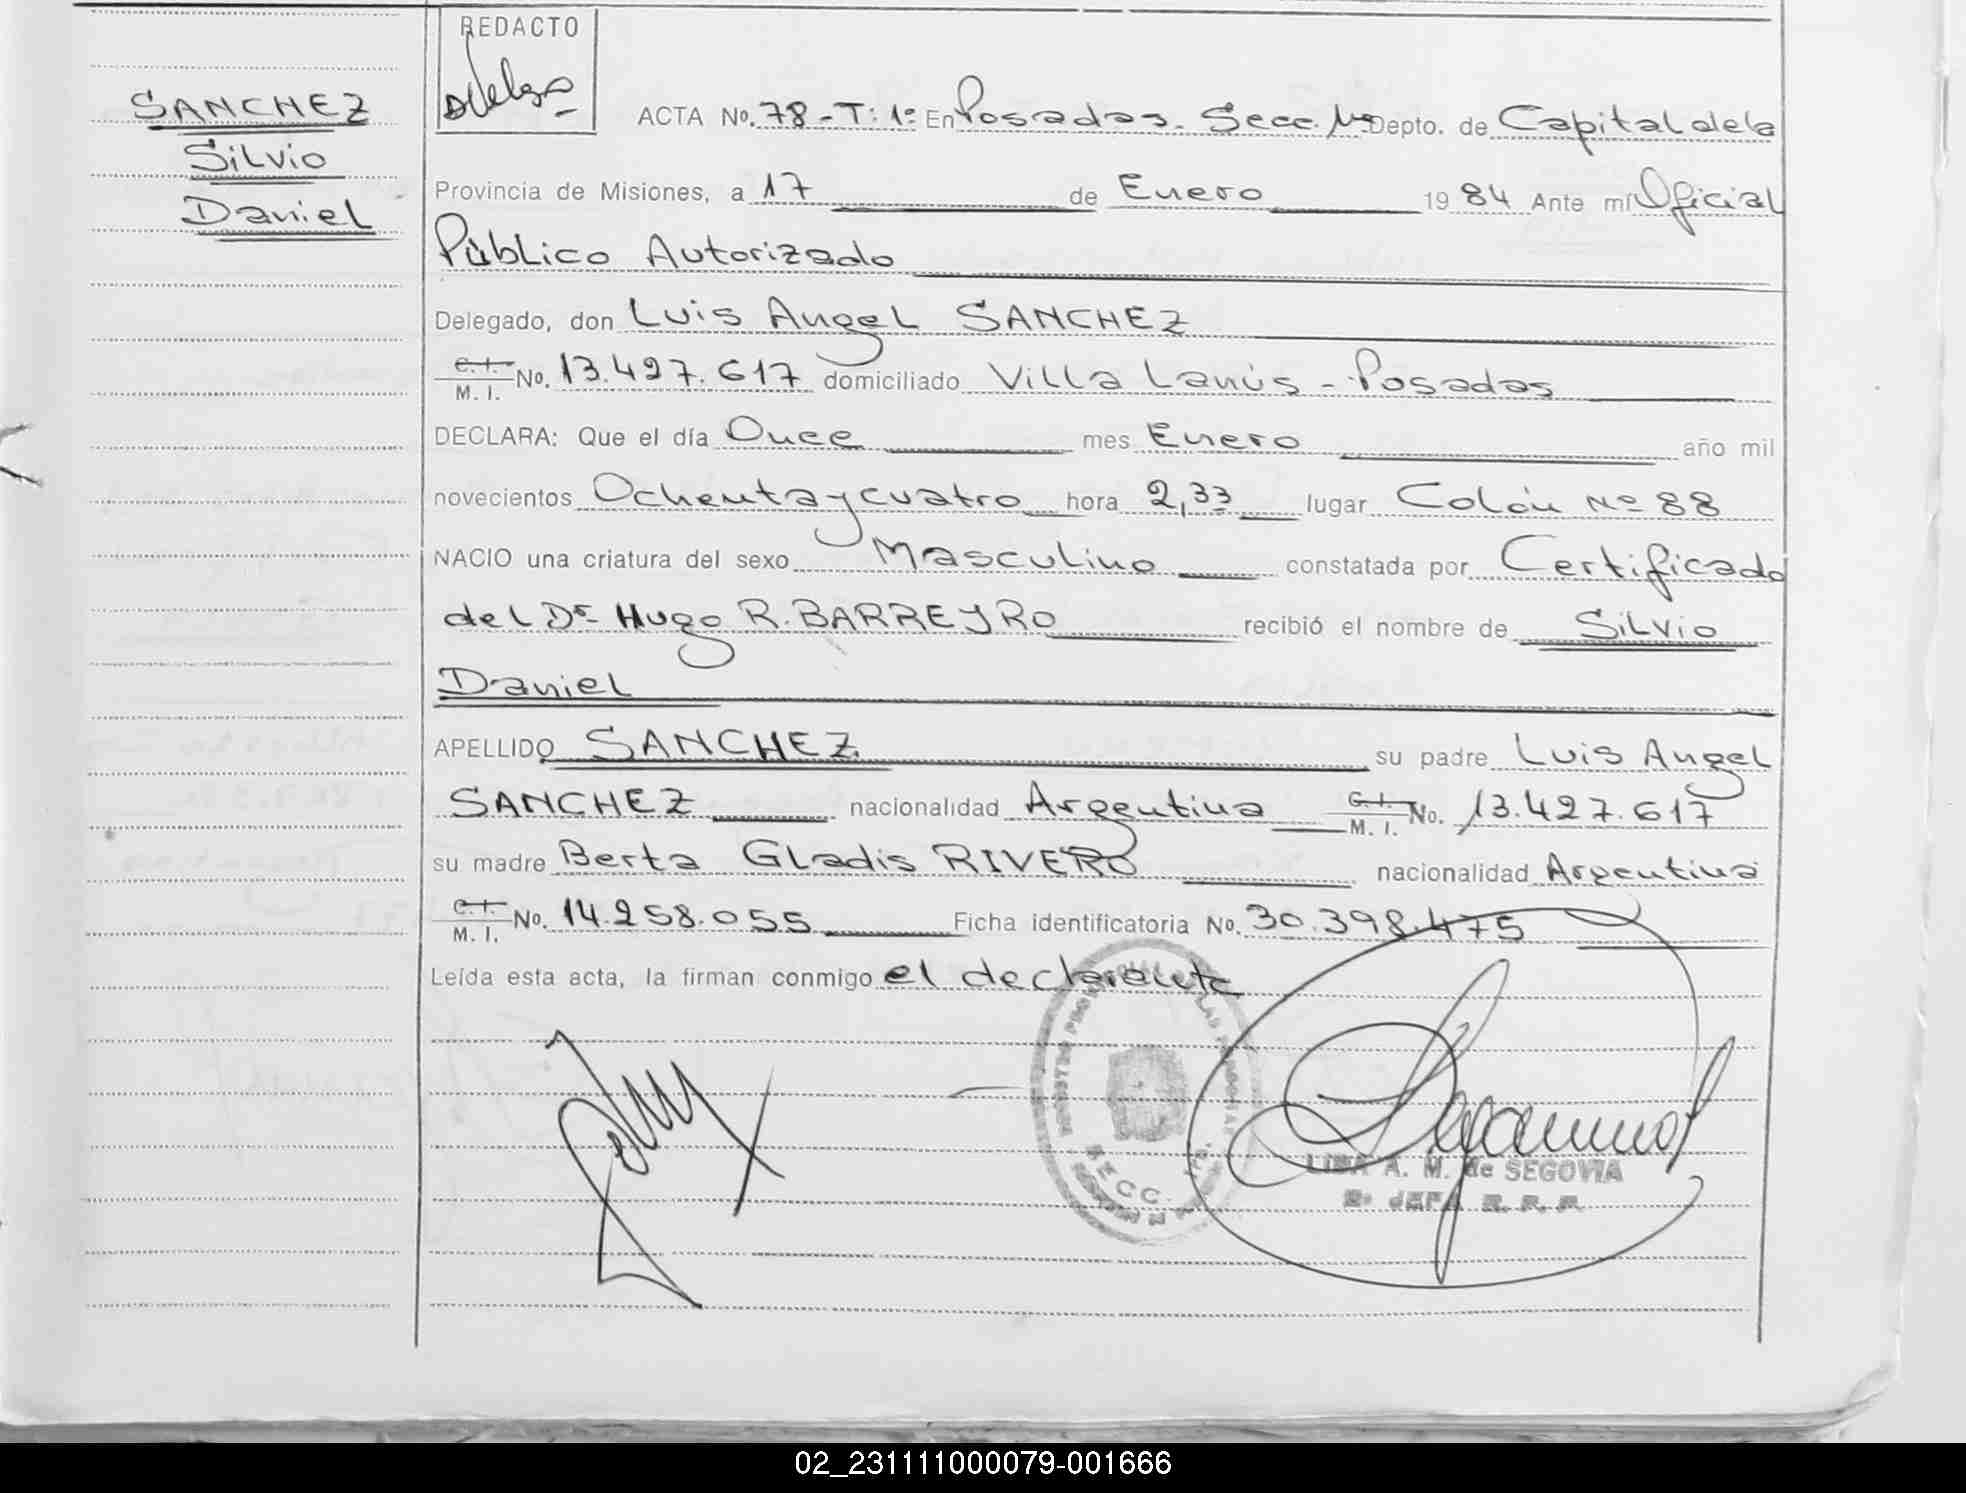 REDACTO
SANCHEZ
Silvio
Daniel
ACTA No. 78 - T: 1º En Posadas. Secc. 1º Depto. de Capital de la
Provincia de Misiones, a 17 de Enero 1984 Ante mí Oficial
Público Autorizado
Delegado, don Luis Angel SANCHEZ
C.I. M. I. No. 13.427.617 domiciliado Villa Lanús - Posadas
DECLARA: Que el día Once mes Enero año mil
novecientos Ochenta y cuatro hora 2,33 lugar Colón Nº 88
NACIO una criatura del sexo Masculino constatada por Certificado
del Dr Hugo R. BARREYRO recibió el nombre de Silvio
Daniel
APELLIDO SANCHEZ su padre Luis Angel
SANCHEZ nacionalidad Argentina C.I. M. I. No. 13.427.617
su madre Berta Gladis RIVERO nacionalidad Argentina
C.I. M. I. No. 14.258.055 Ficha identificatoria No. 30.398.475
Leída esta acta, la firman conmigo el declarante
SECC.
LINA A. M. de SEGOVIA
2º JEFA R. P. P.
02_231111000079-001666